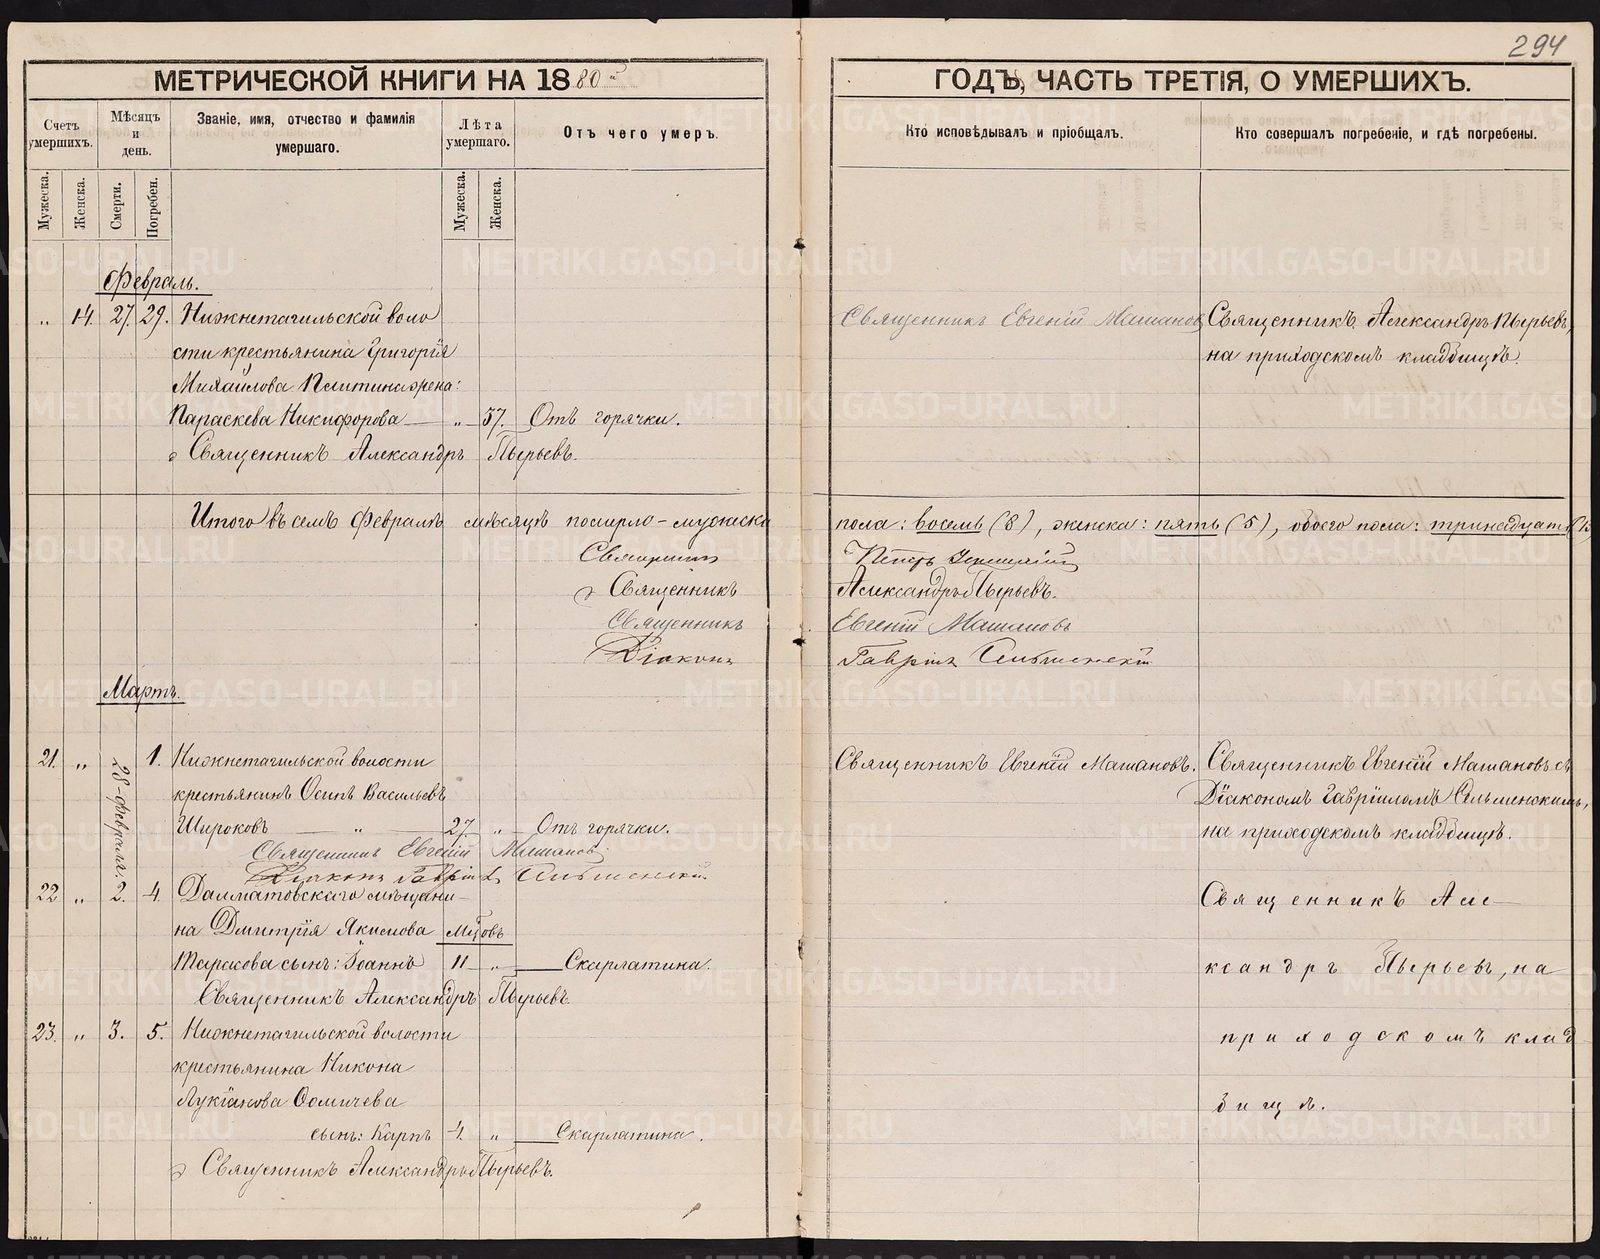 294
МЕТРИЧЕСКОЙ КНИГИ НА 1880й
ГОДЪ, ЧАСТЬ ТРЕТІЯ, О УМЕРШИХЪ.
Счетъ умершихъ.
Мѣсяцъ и день.
Званіе, имя, отчество и фамилія умершаго.
Лѣта умершаго.
Отъ чего умеръ.
Кто исповѣдывалъ и пріобщалъ.
Кто совершалъ погребеніе, и гдѣ погребены.
Мужеска.
Женска.
Смерти.
Погребен.
Мужеска.
Женска.
Февраль.
„ 14. 27. 29. Нижнетагильской воло
сти крестьянина Григорія
Михайлова жена:
Параскева Никифорова — „ — 57. Отъ горячки.
Священникъ Александръ Пырьевъ.
Священникъ Евгеній Машановъ
Священникъ Александръ Пырьевъ,
на приходскомъ кладбищѣ.
Итого въ семъ Февралѣ мѣсяцѣ померло – мужеска
пола: восемь (8), женска: пять (5), обоего пола: тринадцать (13)
Священникъ Петръ
Священникъ Александръ Пырьевъ.
Священникъ Евгеній Машановъ
Діаконъ Гавріилъ Сельменскій
Мартъ.
21. „ 28-февраля. 1. Нижнетагильской волости
крестьянинъ Осипъ Васильевъ
Широковъ — „ — 27. „ — Отъ горячки.
Священникъ Евгеній Машановъ
Діаконъ Гавріилъ Сельменскій
Священникъ Евгеній Машановъ.
Священникъ Евгеній Машановъ съ
Діакономъ Гавріиломъ Сельменскимъ,
на приходскомъ кладбищѣ.
22 „ 2. 4. Далматовскаго мѣщани–
на Димитрія Якимова мѣсяцовъ
Тарасова сынъ: Іоаннъ 11 „ — Скарлатина.
Священникъ Александръ Пырьевъ.
Священникъ Але–
ксандръ Пырьевъ, на
приходскомъ клад
бищѣ.
23. „ 3. 5. Нижнетагильской волости
крестьянина Никона
Лукіанова Фомичева
сынъ: Карпъ 4. „ — Скарлатина.
Священникъ Александръ Пырьевъ.
METRIKI.GASO-URAL.RU